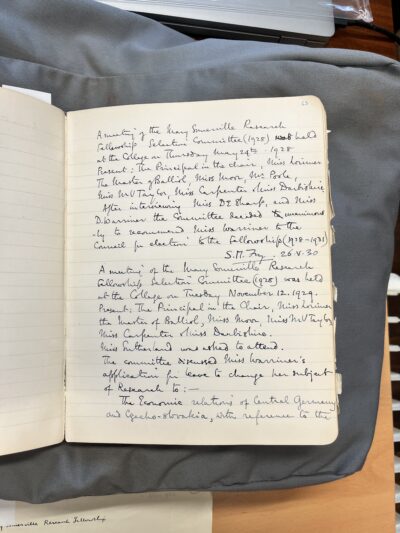 63
A meeting of the Mary Somerville Research
Fellowship Selection Committee (1928) was held
at the College on Thursday May 24th 1928
Present: The Principal in the chair, Miss Lorimer
The Master of Balliol, Miss Moor, Mrs Poole,
Miss M V Taylor, Miss Carpenter & Miss Darbishire
After interviewing Miss D Z Sharf, and Miss
D. Warriner the Committee decided unanimous
-ly to recommend Miss Warriner to the
Council for election to the Fellowship (1928-1931)
S.M. Fry. 26.V.30
A meeting of the Mary Somerville Research
Fellowship Selection Committee (1928) was held
at the College on Tuesday November 12. 1929.
Present: The Principal in the Chair, Miss Lorimer
the Master of Balliol, Miss Moor, Miss M V Taylor
Miss Carpenter & Miss Darbishire.
Miss Sutherland was asked to attend.
The committee discussed Miss Warriner's
application for leave to change her subject
of Research to:—
The Economic relations of Central Germany
and Czecho-slovakia, with reference to the
Somerville Research Fellowship